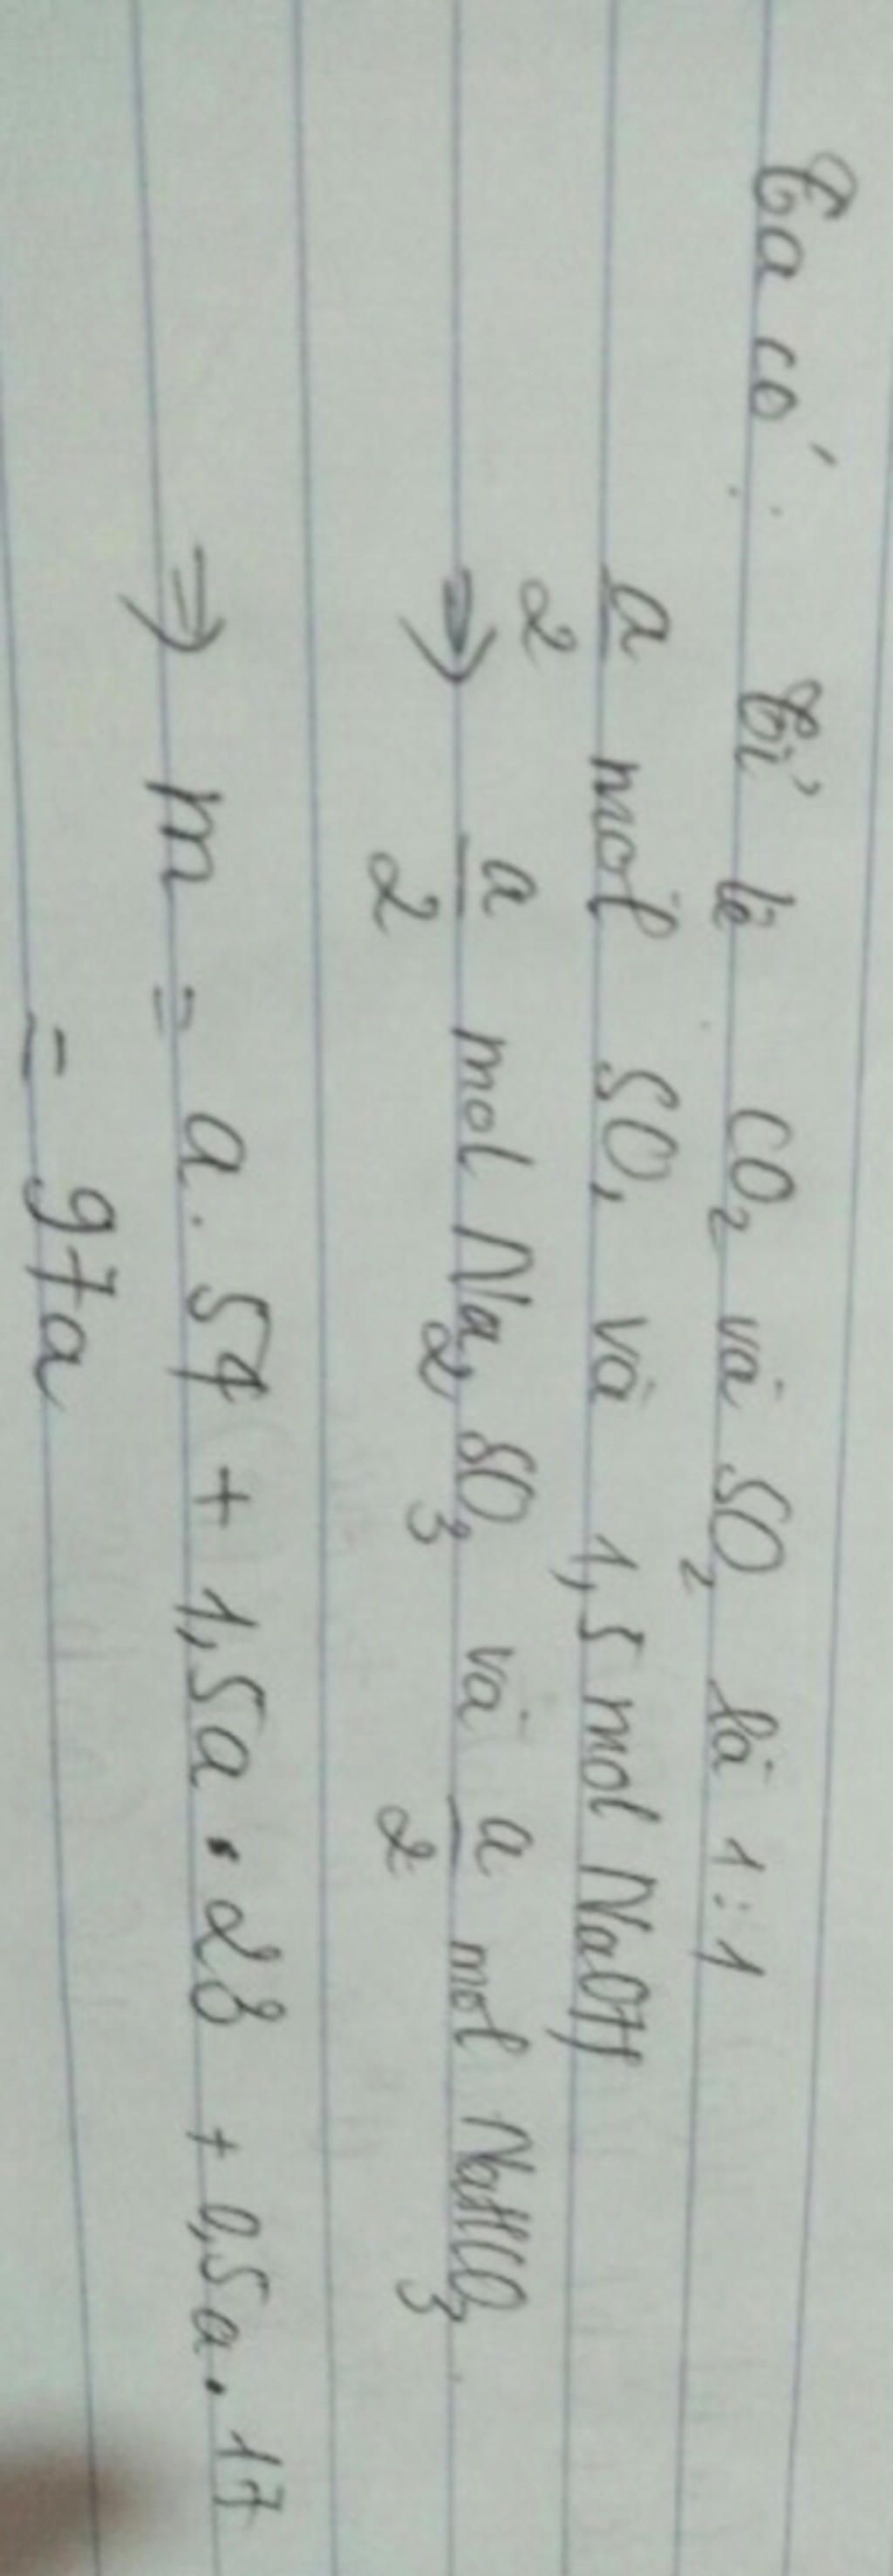 Ta có: Tỉ lệ CO₂ và SO₂ là 1:1
a/2 mol SO, và 1,5 mol NaOH
⇒ a/2 mol Na₂SO₃ và a/2 mol NaHCO₃
⇒ m = a.54 + 1,5a.23 + 0,5a.17
= 97a